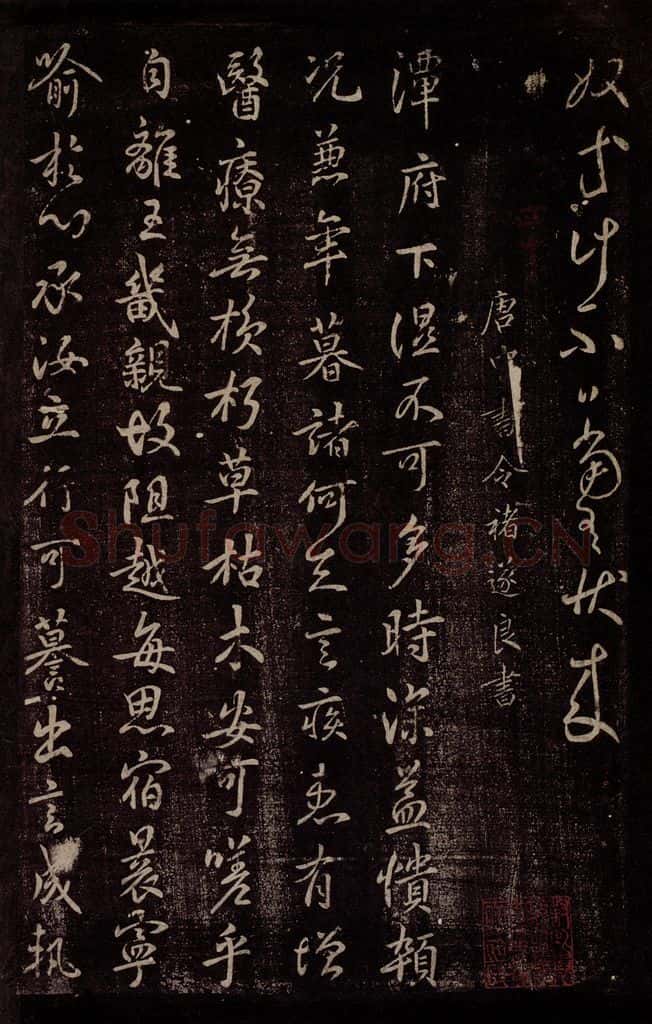 奴
唐中書令褚遂良書
潭府下濕不可多時深益憒頓
況兼年暮諸何足言疾患有增
醫療無損朽草枯木安可嗟乎
自離王畿親故阻越每思宿晨寧
喻於心承汝立行可慕出言成軌
Shufawang.CN